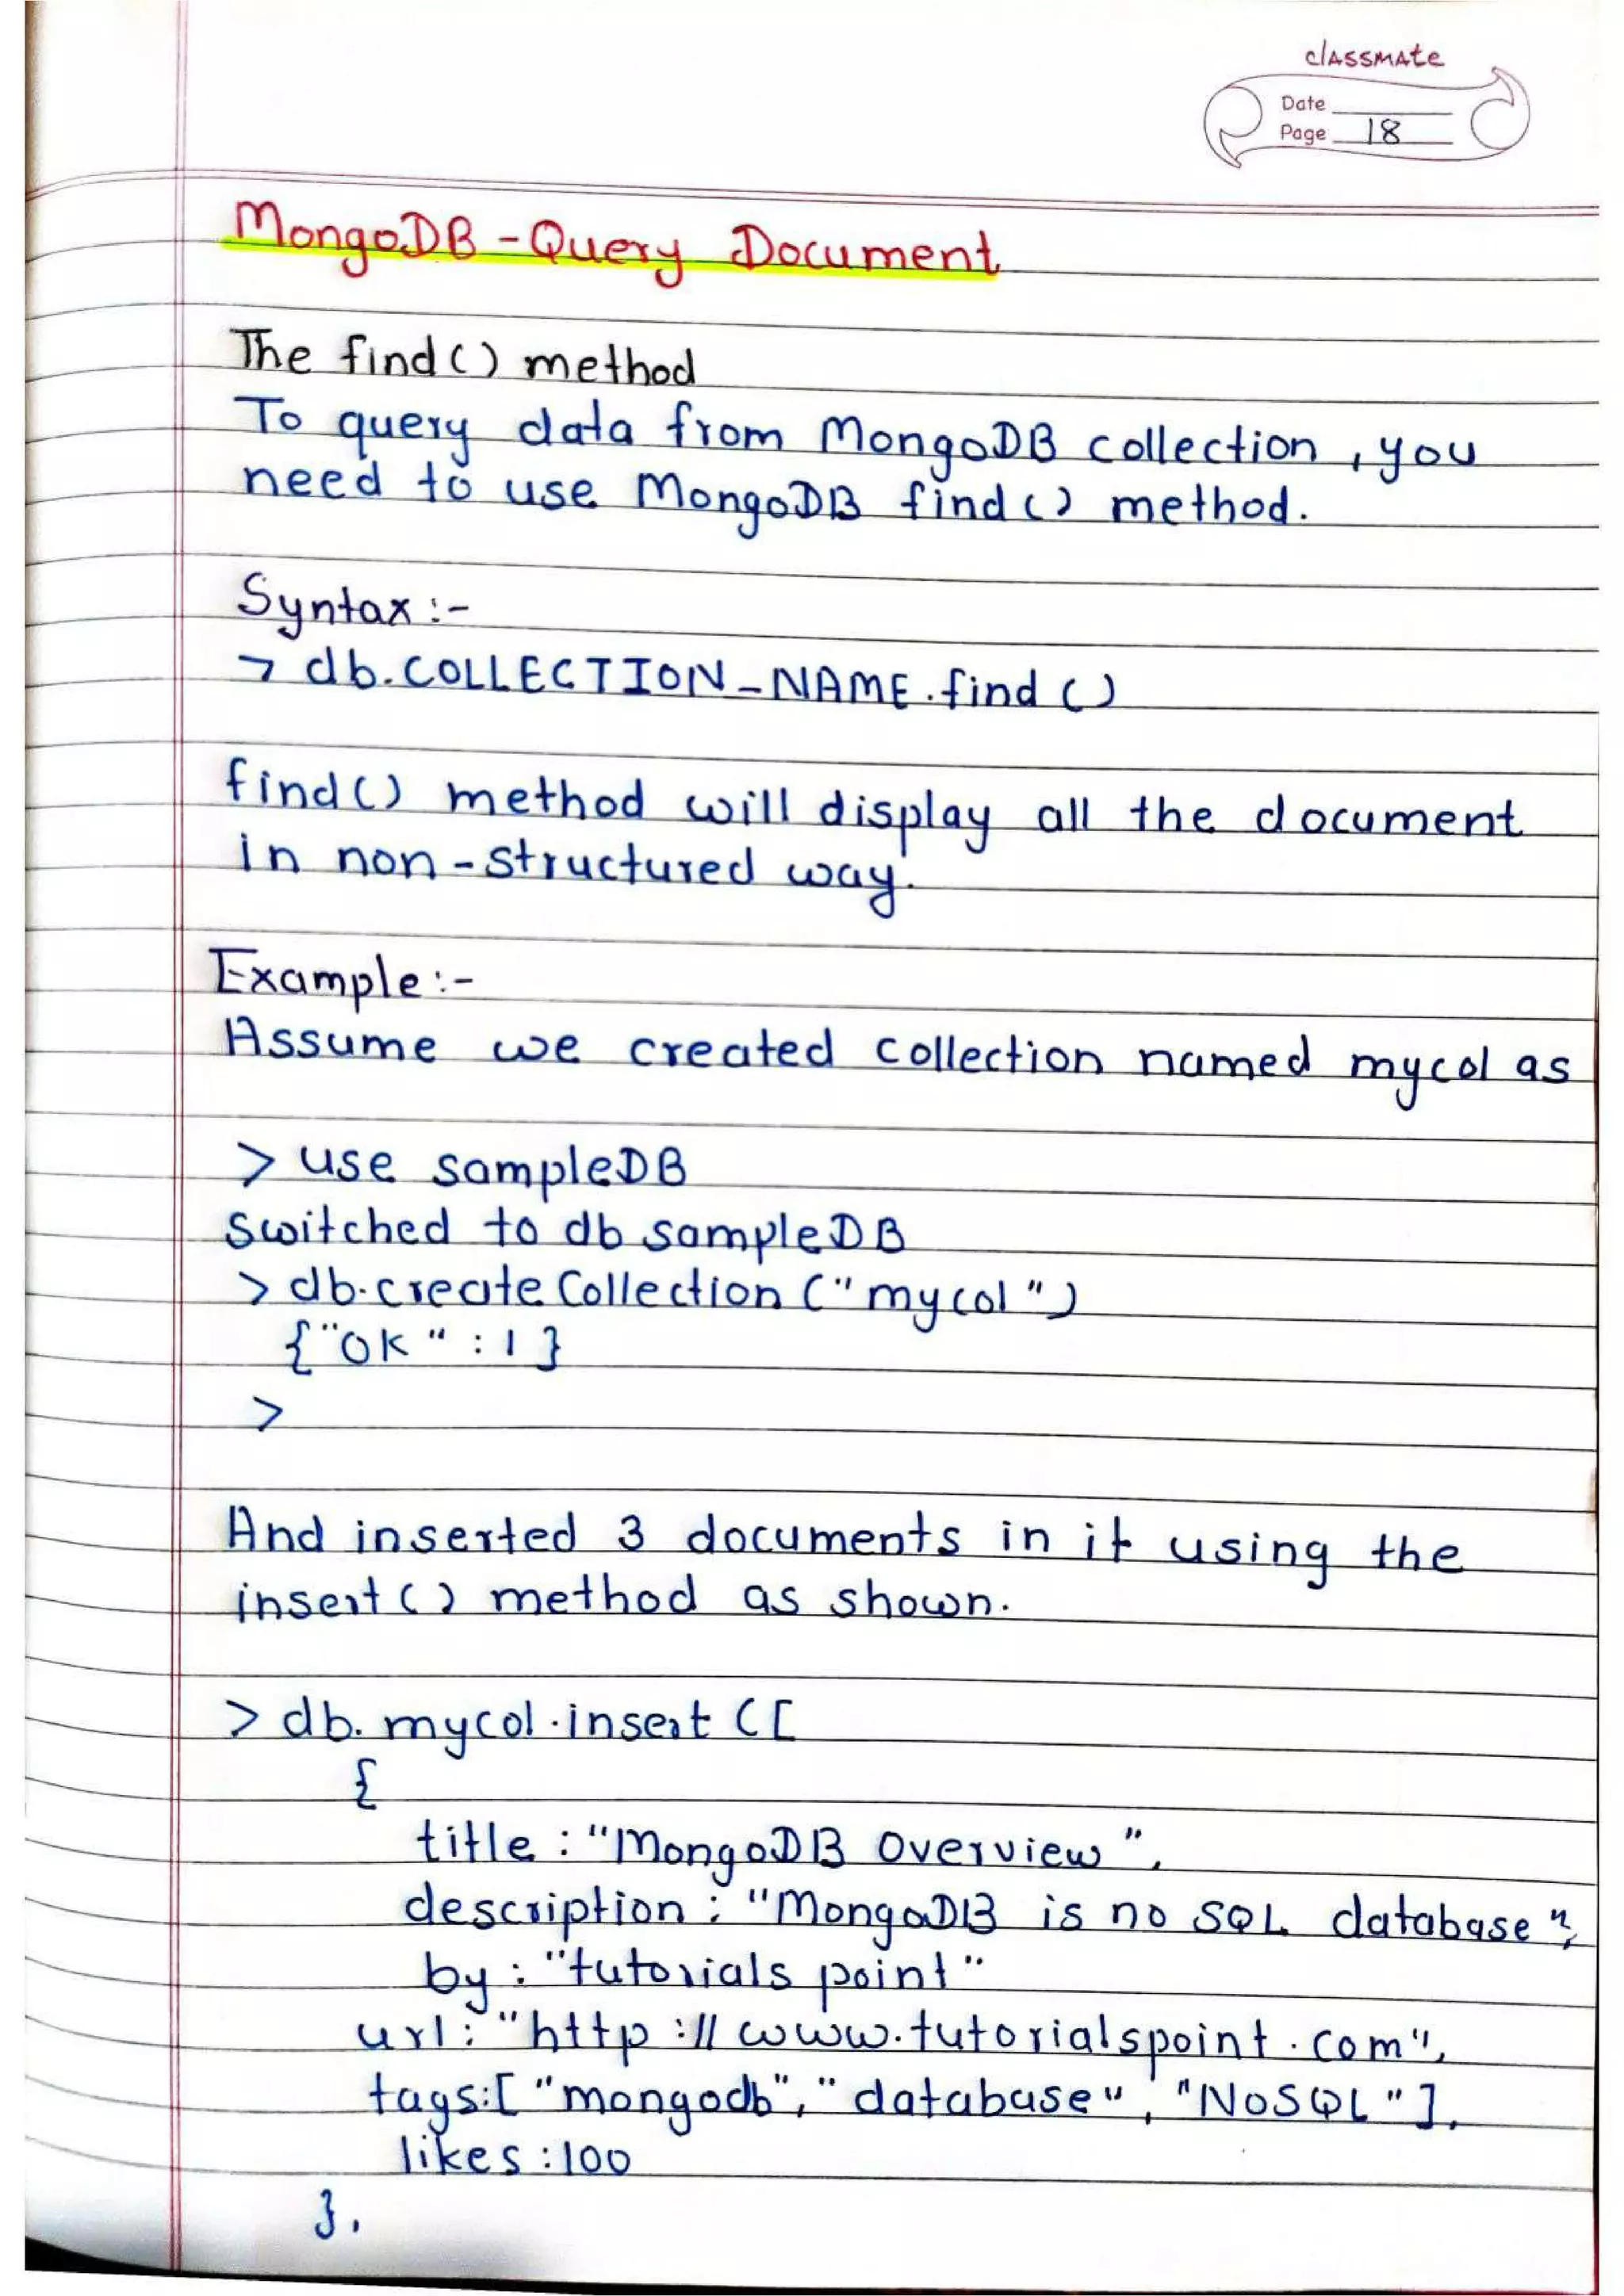 classmate
Date
Page 18
MongoDB - Query Document
The find() method
To query data from MongoDB collection, you
need to use MongoDB find() method.
Syntax :-
> db.COLLECTION_NAME.find()
find() method will display all the document
in non-structured way.
Example :-
Assume we created collection named mycol as
> use sampleDB
switched to db sampleDB
> db.createCollection("mycol")
{"ok" : 1}
>
And inserted 3 documents in it using the
insert() method as shown.
> db.mycol.insert([
{
title : "MongoDB Overview",
description : "MongoDB is no SQL database",
by : "tutorials point"
url : "http://www.tutorialspoint.com",
tags:["mongodb", "database", "NoSQL"],
likes : 100
},